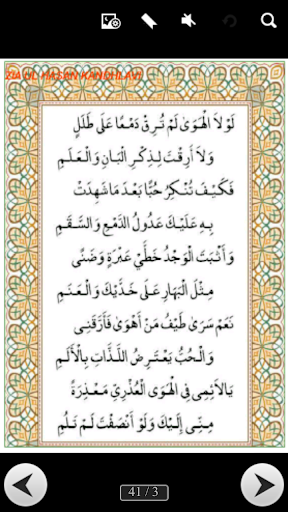 ZIA UL HASAN KANDHLAVI
لَوْلاَ الْهَوَىٰ لَمْ تُرِقْ دَمْعًا عَلَى طَلَلٍ
وَلاَ أَرِقْتَ لِذِكْرِ الْبَانِ وَالْعَلَمِ
فَكَيْفَ تُنْكِرُ حُبًّا بَعْدَ مَا شَهِدَتْ
بِهِ عَلَيْكَ عَدُولُ الدَّمْعِ وَالسَّقَمِ
وَأَثْبَتَ الْوَجْدُ خَطَّيْ عَبْرَةٍ وَضَنًى
مِثْلَ الْبَهَارِ عَلَى خَدَّيْكَ وَالْعَنَمِ
نَعَمْ سَرَى طَيْفُ مَنْ أَهْوَى فَأَرَّقَنِي
وَالْحُبُّ يَعْتَرِضُ اللَّذَّاتِ بِالْأَلَمِ
يَا لاَئِمِي فِي الْهَوَى الْعُذْرِيِّ مَعْذِرَةً
مِنِّي إِلَيْكَ وَلَوْ أَنْصَفْتَ لَمْ تَلُمِ
41 / 3